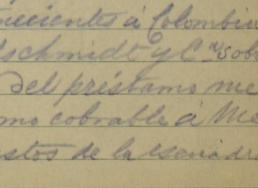 necientes á Colombia
dschmidt y Cª sob
del préstamo me
mo cobrable á Me
stos de la escuadr